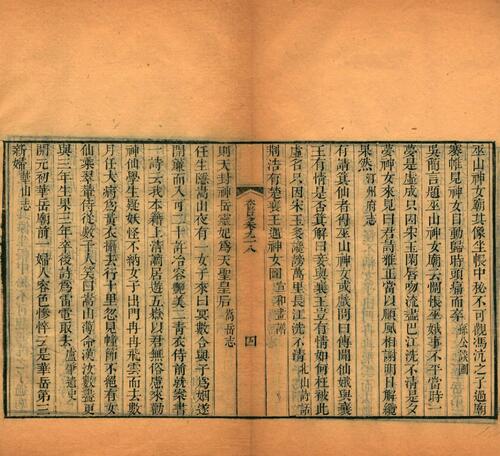 巫山神女廟其像坐帳中秘不可觀馮沆之子過廟
褰帷見神女目動歸時頭痛而卒孫公談圃
吳簡言題巫山神女廟云惆悵巫娥事不平當時一
夢是虛成只因宋玉閑唇吻流盡巴江洗不清是夕
夢神女來見曰君詩雅正當以順風相謝明日解纜
果然江州府志
有請箕仙者得巫山神女或戲問曰傳聞仙娥與襄
王有情是否箕解曰妾與襄王豈有情如何枉被此
虛名只因宋玉多淺謗萬里長江洗不清北山詩話
荆浩有楚襄王遇神女圖宣和畫譜
則天封神岳靈妃為天聖皇后嵩岳志
任生隱嵩山夜有一女子來曰冥數合與子為姻遂
開簾而入可二十許冶容艷美二青衣侍前就案書
一詩云我本籍上清謫居遊五嶽以君無俗慮來勸
神仙學生疑妖怪不納女子出門冉冉飛雲而去數
月任大病為黃衣攝去行十里忽見幢節不絕有女
仙乘翠輦侍從數十人笑曰嵩山薄命漢汝數盡更
與三年生果三年卒後詩為雷電取去盧肇逸史
開元初華岳廟前一婦人容色慘悴云是華岳第三
新婦華山志
四